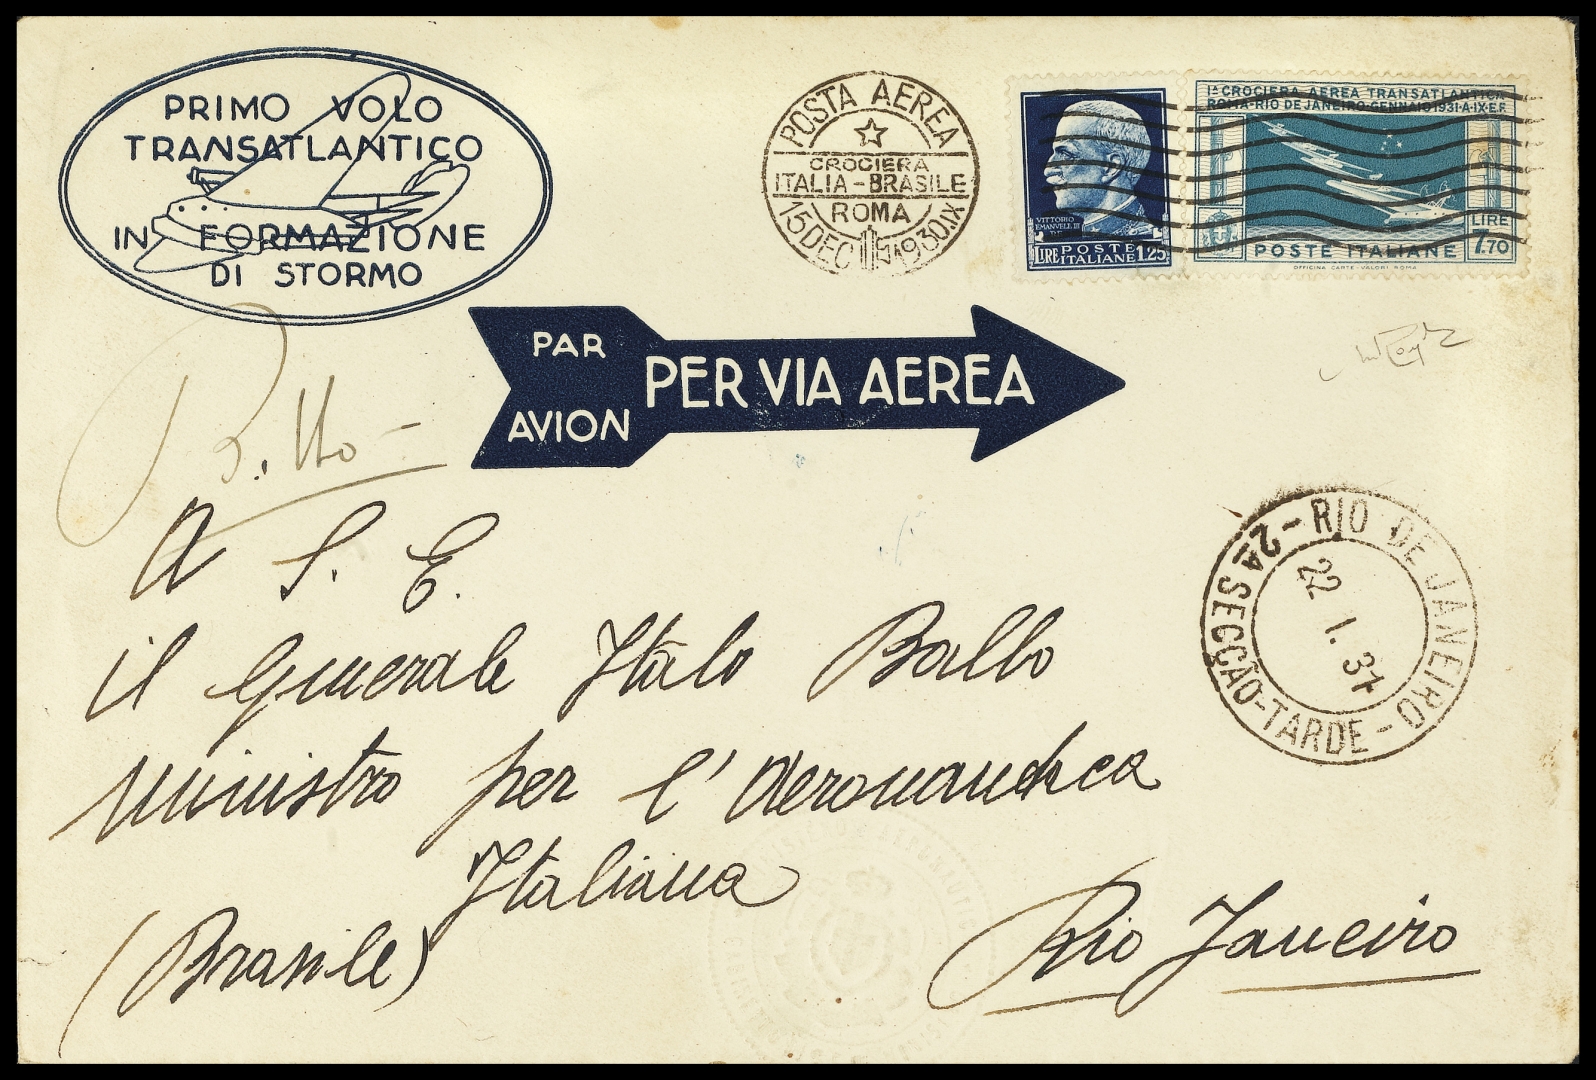 PRIMO VOLO
TRANSATLANTICO
IN FORMAZIONE
DI STORMO
POSTA AEREA
CROCIERA
ITALIA-BRASILE
ROMA
15 DEC 1930.IX
VITTORIO
EMANVELE III
RE
POSTE
LIRE ITALIANE 1.25
Iª CROCIERA AEREA TRANSATLANTICA
ROMA-RIO DE JANEIRO-GENNAIO 1931-A·IX·E·F.
LIRE
7.70
POSTE ITALIANE
OFFICINA CARTE-VALORI ROMA
PAR
AVION
PER VIA AEREA
A S. E.
il Generale Italo Balbo
Ministro per l'Aeronautica
Italiana
(Brasile)
Rio Janeiro
RIO DE JANEIRO -
2ª SECÇÃO-TARDE -
22 I. 31